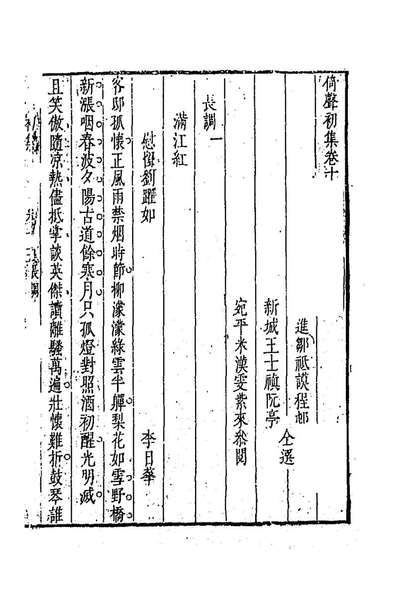 倚聲初集卷十
進鄒祗謨程邨
新城王士禛阮亭
仝選
宛平米漢雯紫來叅閱
長調一
滿江紅
慰傷劉躍如
李日華
客邸孤懷正風雨禁烟時節柳濛濛綠雲半嚲梨花如雪野橋
新漲咽春波夕陽古道餘寒月只孤燈對照酒初醒光明滅
且笑傲隨涼熱儘抵掌談英傑讀離騷萬遍壯懷難折鼓琴誰